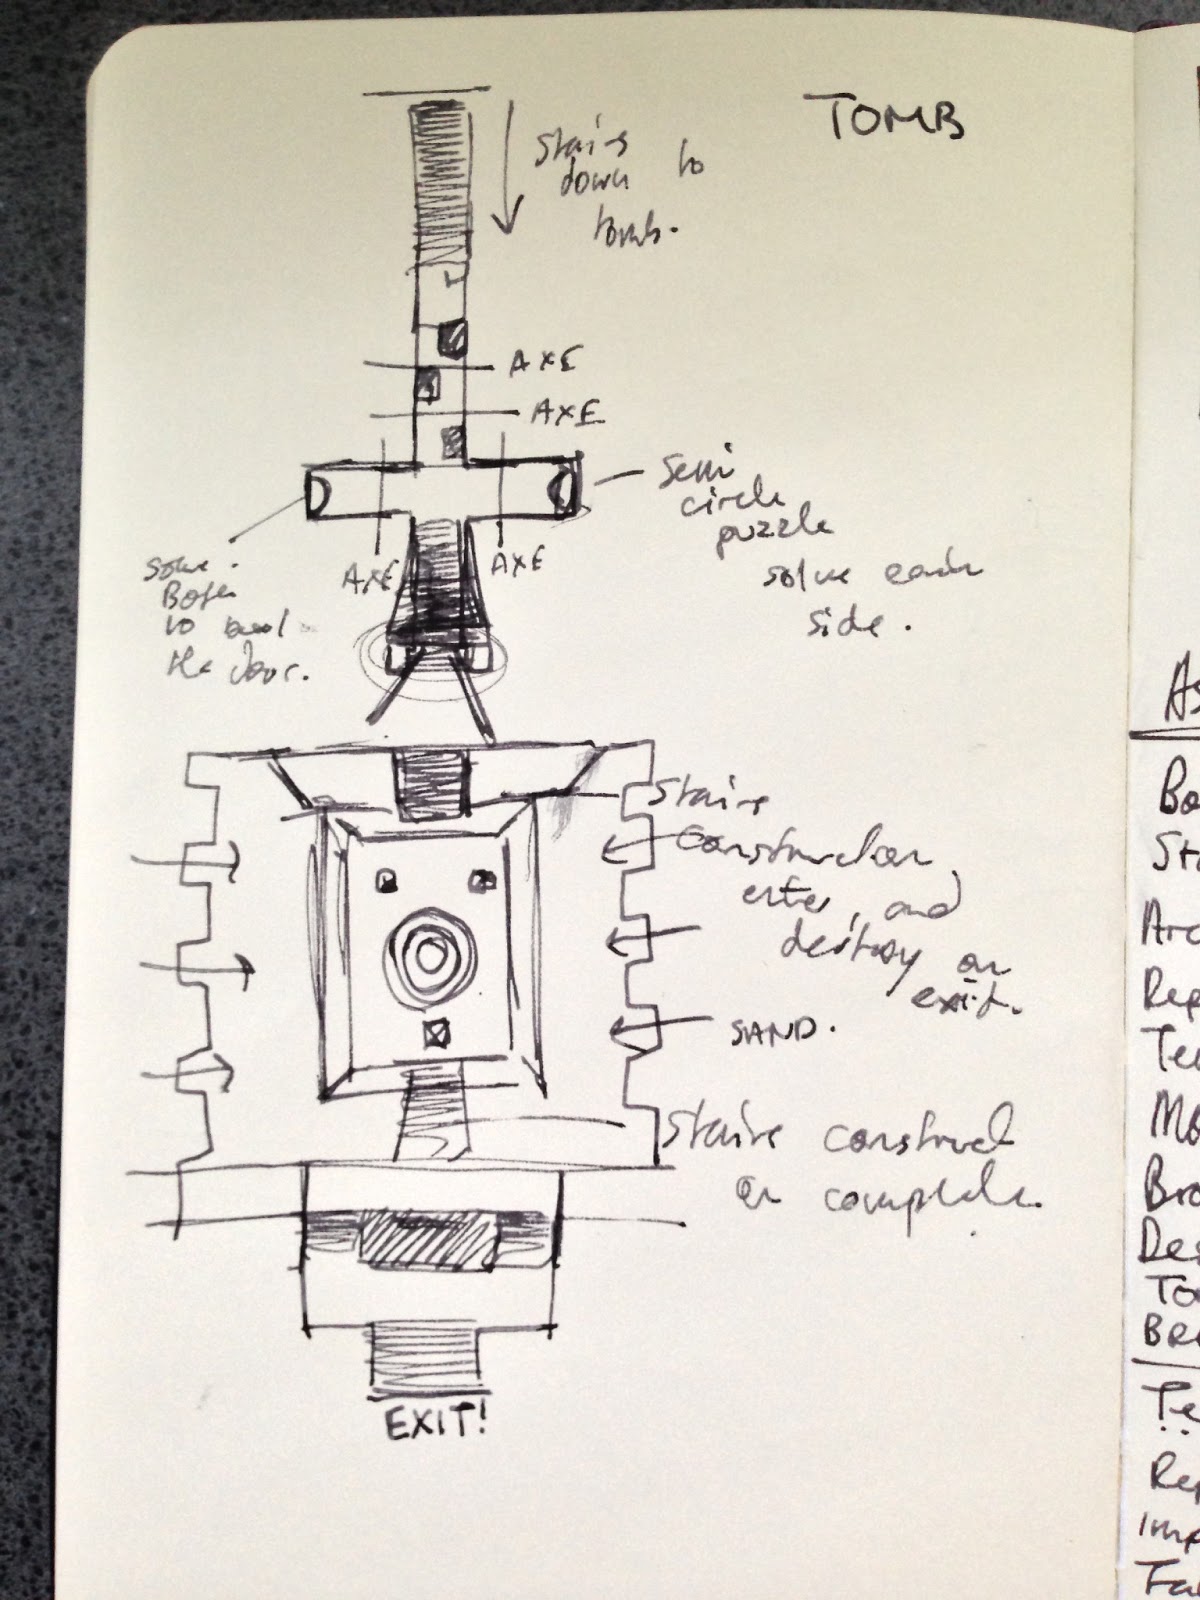 TOMB
Stairs
down to
tomb.
AXE
AXE
Semi
circle
puzzle
solve each
side.
AXE
AXE
Solve
Both
to
the door.
Stairs
construct on
enter, and
destroy on
exit.
SAND.
Stairs construct
on complete.
EXIT!
As
Bo
St
Arc
Rep
Te
Mo
Bro
Des
To
BR
Te
Rep
Imp
Fa